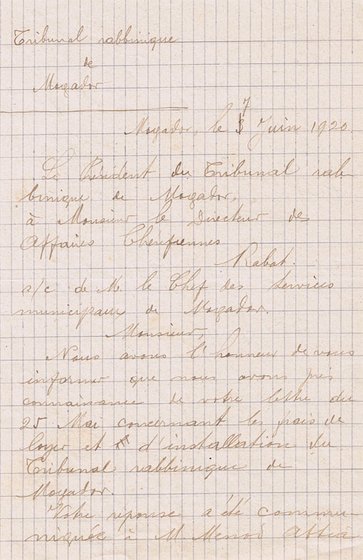 Tribunal rabbinique
de
Mogador
Mogador, le 7 Juin 1920
Le Président du Tribunal rab-
binique de Mogador,
à Monsieur le Directeur des
Affaires Cherifiennes
Rabat.
a/c de M. le Chef des Services
municipaux de Mogador.
Monsieur,
Nous avons l'honneur de vous
informer que nous avons pris
connaissance de votre lettre du
25 Mai concernant les frais de
loyer et d'installation du
Tribunal rabbinique de
Mogador.
Votre reponse a été commu-
niquée à M.